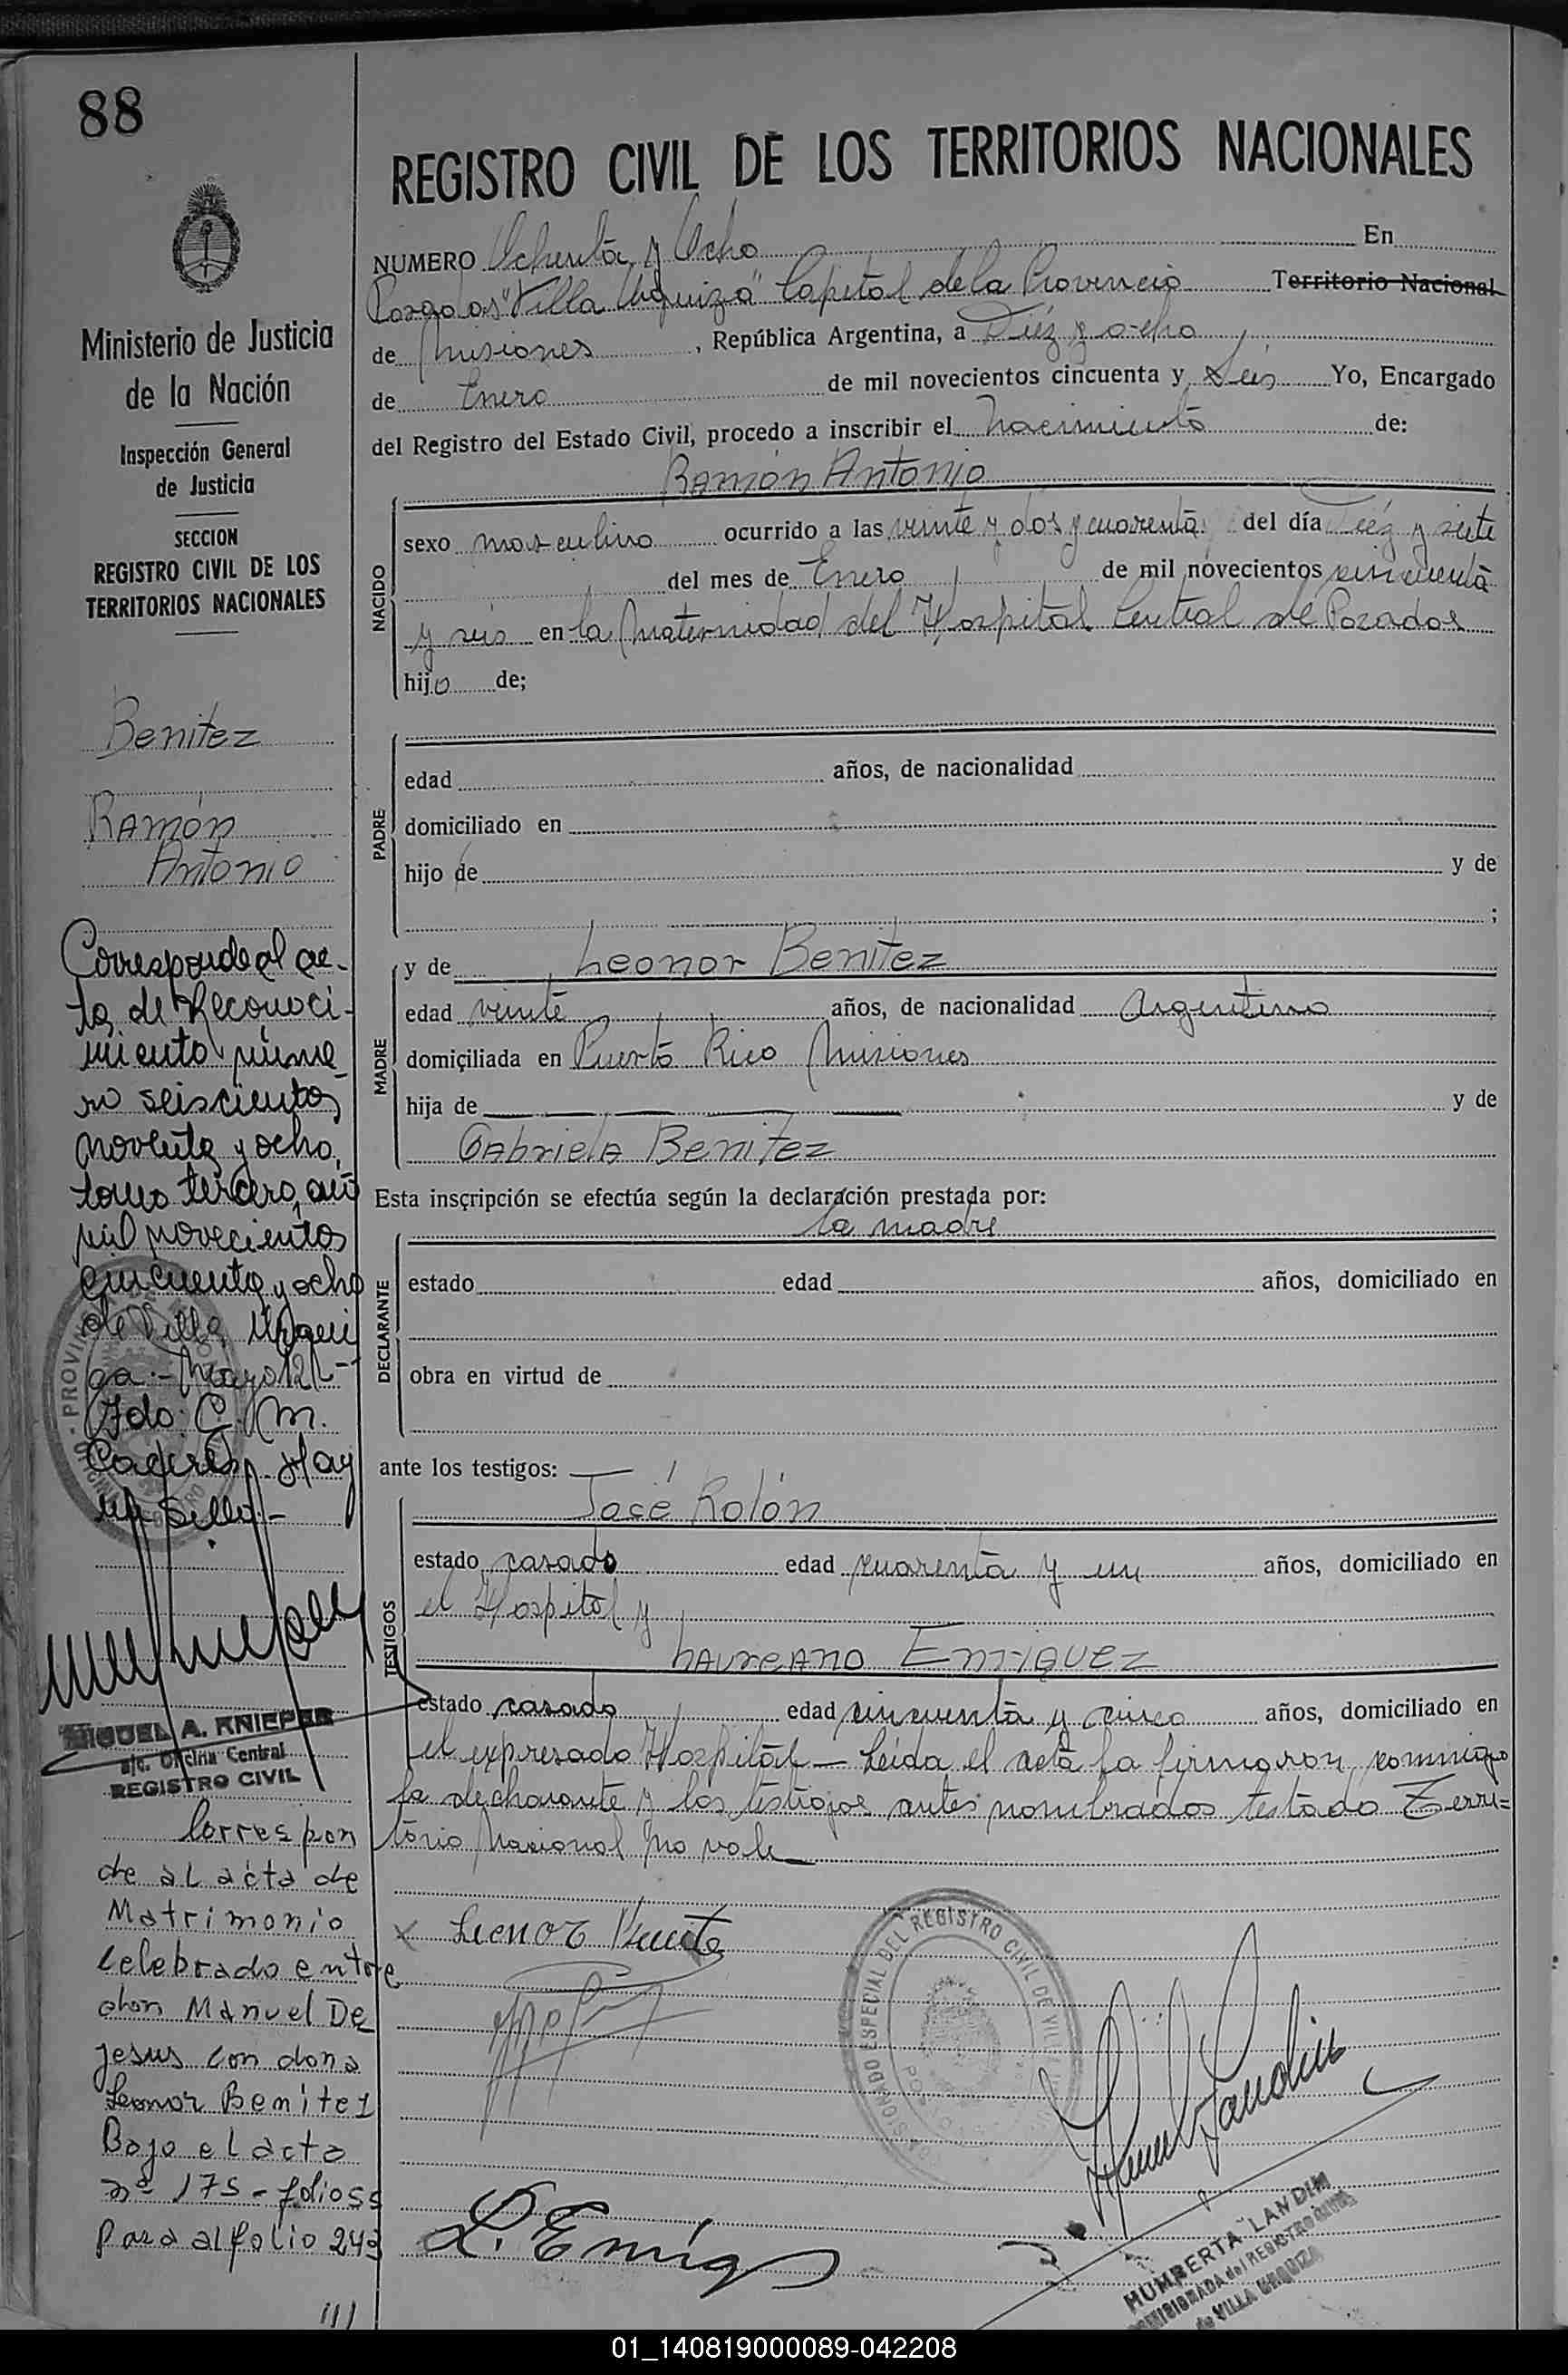 88
Ministerio de Justicia
de la Nación
Inspección General
de Justicia
SECCION
REGISTRO CIVIL DE LOS
TERRITORIOS NACIONALES
Benitez
Ramón
Antonio
Corresponde al ac-
ta de Reconoci-
miento núme-
ro seiscientos
noventa y ocho,
tomo tercero, año
mil novecientos
cincuenta y ocho
de Villa Urqui
za.- Mayo 12/-
Fdo: C. M.
Caceres. Hay
un sello.-
MIGUEL A. KNIEPER
a/c. Oficina Central
REGISTRO CIVIL
Correspon
de al acta de
Matrimonio
celebrado entre
don Manuel De
Jesus con dona
Leonor Benitez
Bajo el acta
nº 175 - folio 55
Pasa al folio 249
REGISTRO CIVIL DE LOS TERRITORIOS NACIONALES
NUMERO Ochenta y Ocho En
Posadas "Villa Urquiza" Capital de la Provincia Territorio Nacional
de Misiones, República Argentina, a Diéz y ocho
de Enero de mil novecientos cincuenta y Seis Yo, Encargado
del Registro del Estado Civil, procedo a inscribir el nacimiento de:
Ramón Antonio
NACIDO
sexo masculino ocurrido a las veinte y dos y cuarenta del día Diéz y siete
del mes de Enero de mil novecientos cincuenta
y seis en la Maternidad del Hospital Central de Posadas
hijo de;
PADRE
edad años, de nacionalidad
domiciliado en
hijo de y de
;
MADRE
y de Leonor Benitez
edad veinte años, de nacionalidad Argentina
domiciliada en Puerto Rico Misiones
hija de y de
Gabriela Benitez
Esta inscripción se efectúa según la declaración prestada por:
la madre
DECLARANTE
estado edad años, domiciliado en
obra en virtud de
ante los testigos:
José Rolón
TESTIGOS
estado casado edad cuarenta y un años, domiciliado en
el Hospital y
Laureano Enriquez
estado casado edad cincuenta y cinco años, domiciliado en
el expresado Hospital - Leída el acta la firmaron conmigo
la declarante y los testigos antes nombrados testado Terri=
torio Nacional No vale
x Leonor
REGISTRO CIVIL DE VILLA
L. Enriq
HUMBERTA LANDIN
COMISIONADA del REGISTRO CIVIL
de VILLA URQUIZA
01_140819000089-042208